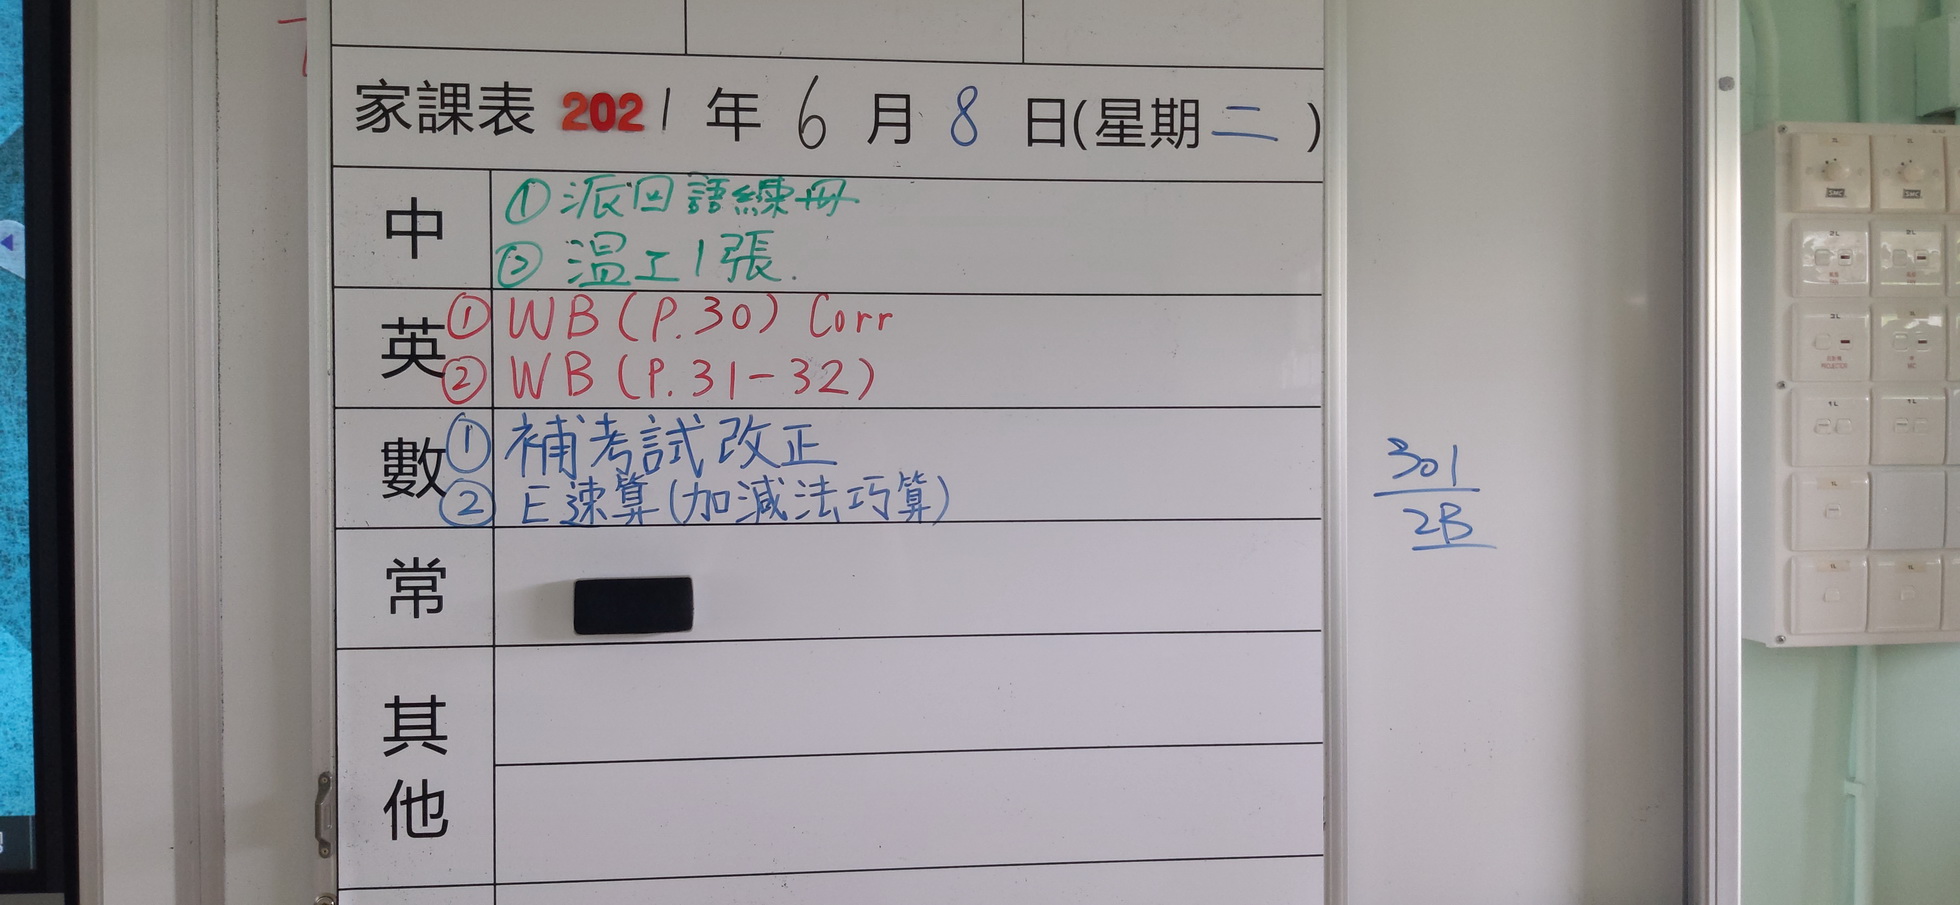 家課表 2021 年 6 月 8 日(星期二)
中
① 派回語練冊
② 溫工1張.
英
① WB (P.30) Corr
② WB (P.31-32)
數
① 補考試改正
② E速算(加減法巧算)
常
其他
301
2B